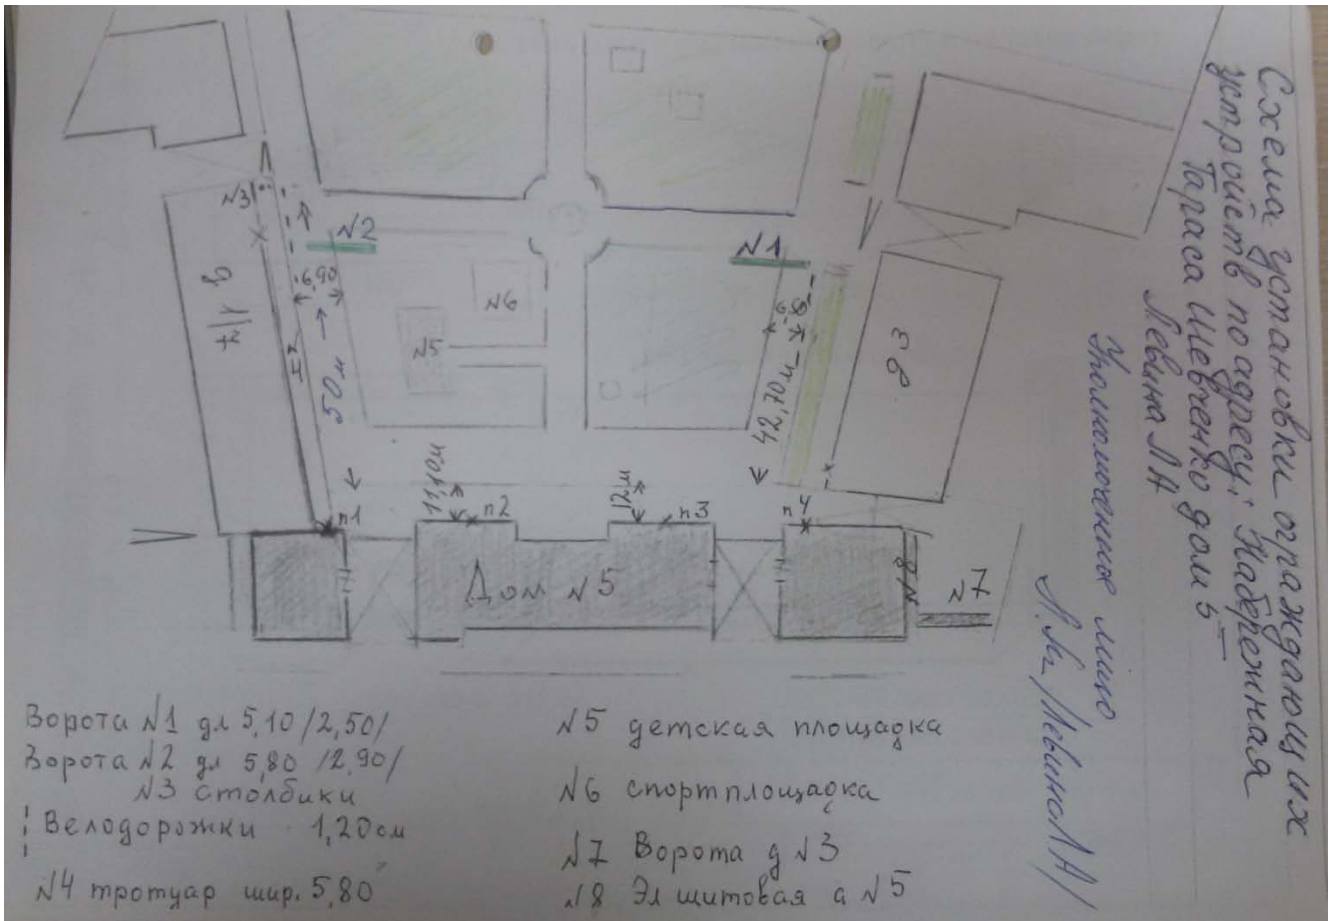 Схема установки ограждающих
устройств по адресу: Набережная
Тараса Шевченко дом 5
Левина ЛА
Уполномоченное лицо
/Левина ЛА/
№3
№2
№1
6,90
50м
№6
№5
42,70м
д 1/2
д 3
11,10м
12м
п1
п2
п3
п4
Дом №5
№8
№7
Ворота №1 дл 5,10 /2,50/
Ворота №2 дл 5,80 /2,90/
№3 столбики
Велодорожки 1,20см
№4 тротуар шир. 5,80
№5 детская площадка
№6 спортплощадка
№7 Ворота д №3
№8 Эл щитовая а №5